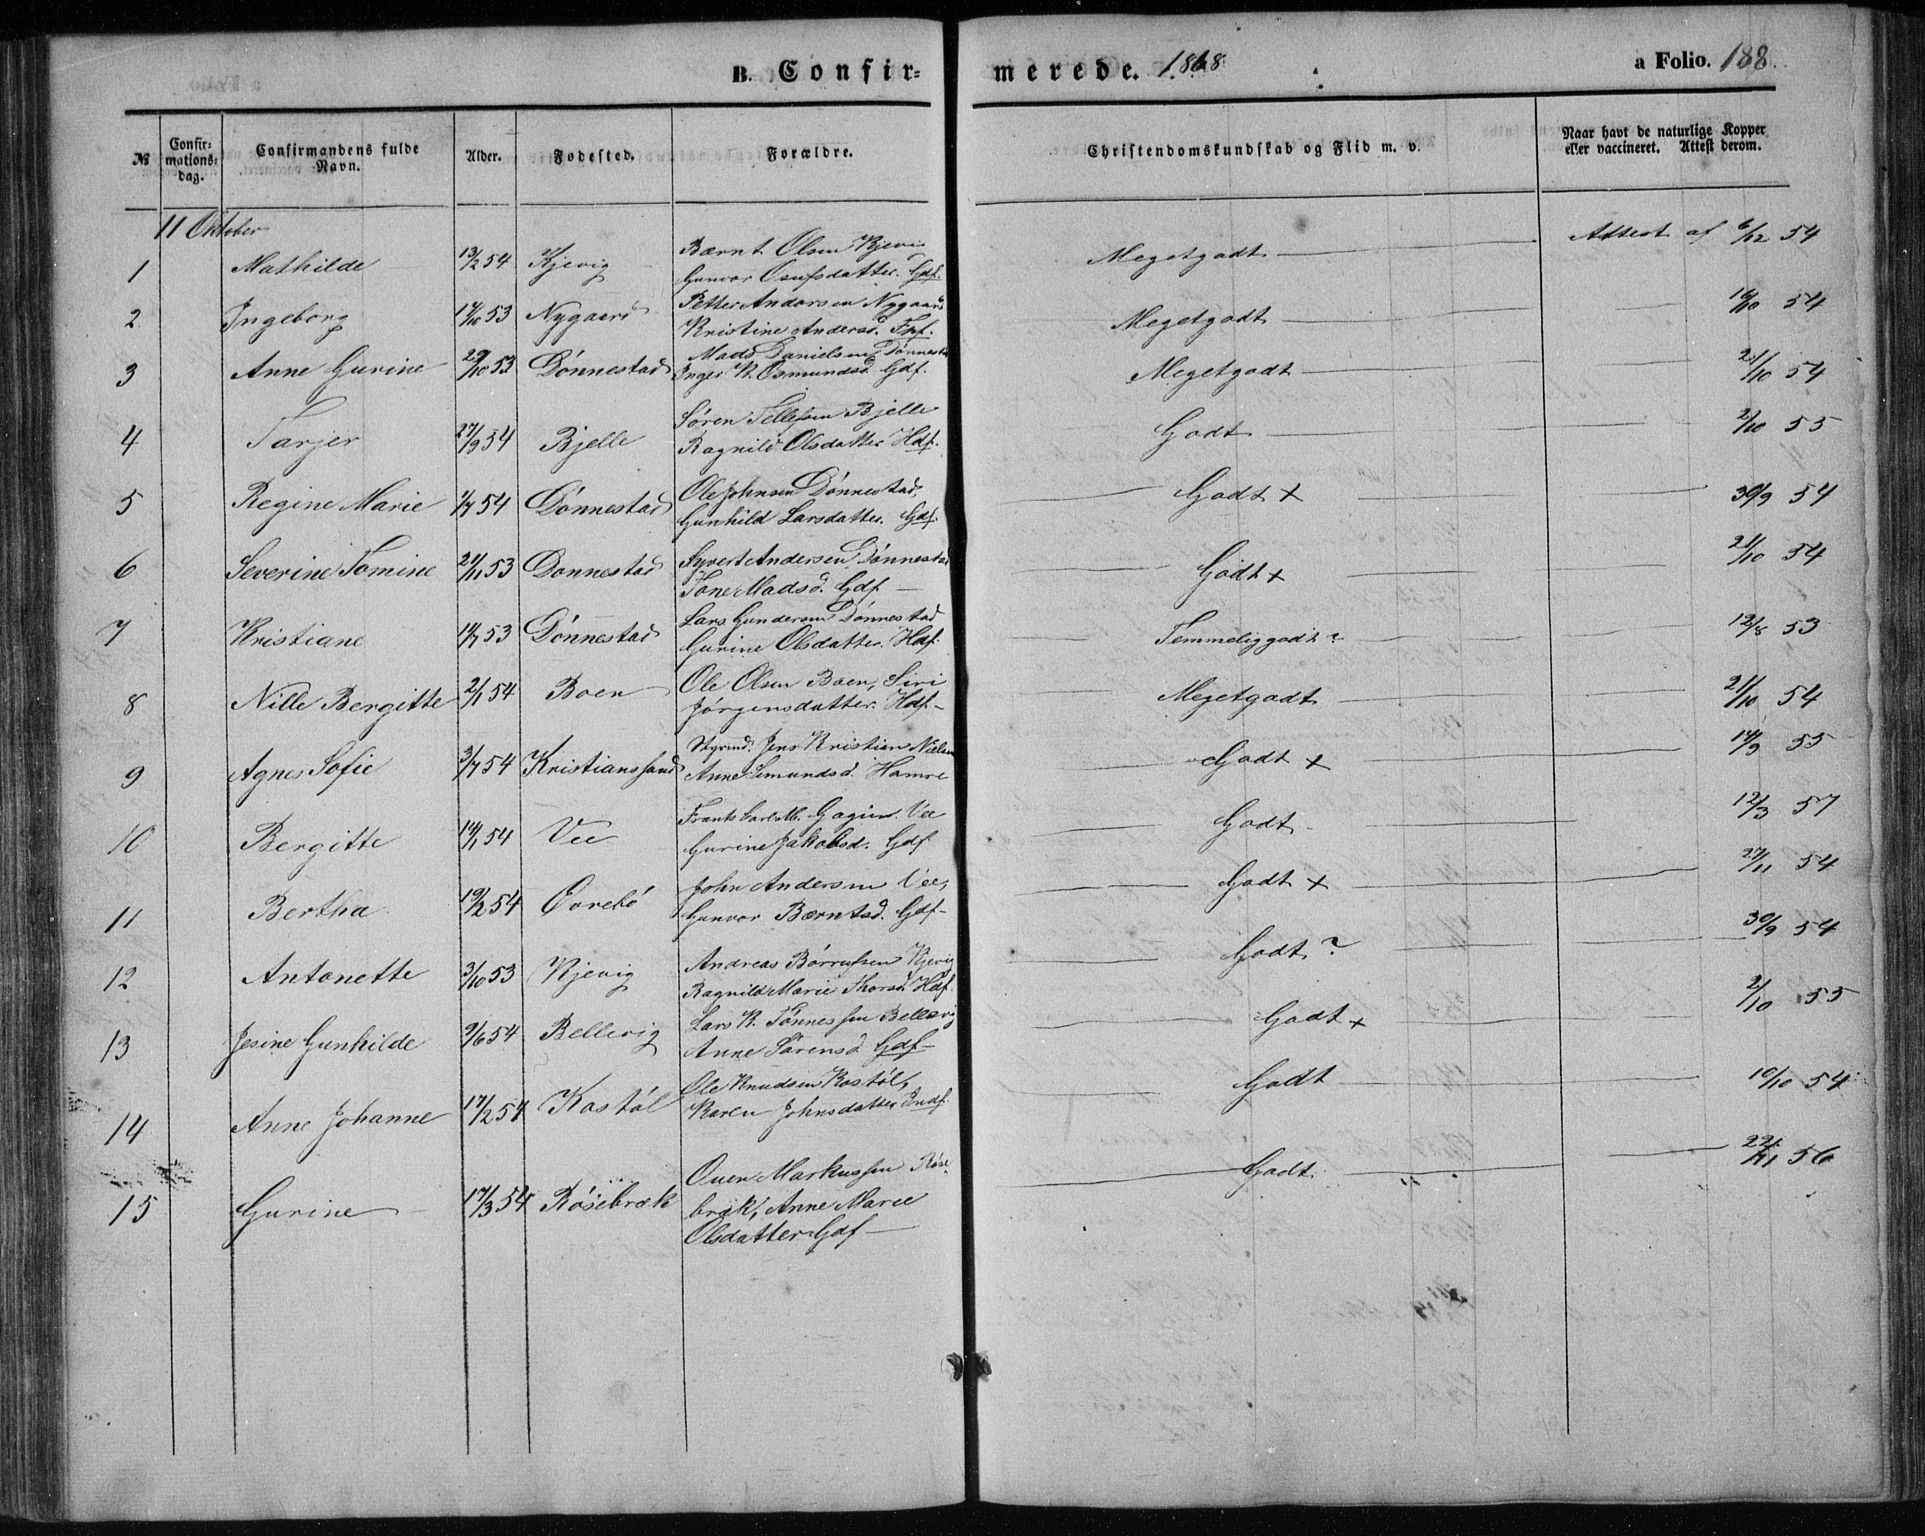 B. Confir-merede. 1868 a Folio. 188
№ Confir-mations-dag. Confirmandens fulde Navn. Alder. Fødested. Forældre. Christendomskundskab og Flid m. v. Naar havt de naturlige Kopper eller vaccineret. Attest derom.
11 Oktober
1 Mathilde 13/2 54 Kjevig Bærnt Olsen Kjevi Megetgodt Attest af 6/12 54
Gunvor Osufsdatter. Gdf.
2 Ingeborg 17/10 53 Nygaard Petter Andersen Nygaard Megetgodt 16/10 54
Kristine Andersd. Fpf.
3 Anne Gurine 29/10 53 Dønnestad Mads Danielsen Dønnestad Megetgodt 21/10 54
Inger K. Osmundsd. Gdf.
4 Tarjer 27/9 54 Bjelle Søren Tellefsen Bjelle Godt 2/10 55
Ragnild Olsdatter Hdf.
5 Regine Marie 1/7 54 Dønnestad Ole Johnsen Dønnestad, Godt + 30/9 54
Gunhild Larsdatter. Gdf.
6 Severine Tomine 21/11 53 Donnestad Syvert Andersen Dønnestad Godt + 21/10 54
Tone Madsd. Gdf.
7 Kristiane 14/7 53 Dønnestad Lars Gundersen Dønnestad Temmeliggodt? 12/8 53
Gurine Olsdatter. Hdf.
8 Nille Bergitte 2/1 54 Boen Ole Olsen Boen, Siri Megetgodt 21/10 54
Jørgensdatter. Hdf.
9 Agnes Sofie 3/7 54 Kristianssand Styrmd. Jens Kristian Nielsen Godt + 14/9 55
Anne Simundsd. Hamre
10 Bergitte 14/1 54 Vee Frants Carl M. Gogim. Vee Godt 12/3 57
Gurine Jakobsd. Gdf
11 Bertha 19/2 54 Øvrebø John Andersen Vee, Godt + 27/11 54
Gunvor Bærntsd. Gdf
12 Antonette 3/10 53 Kjevig Andreas Børrufsen Kjevig Godt? 30/9 54
Ragnild Marie Thorsd. Hdf.
13 Jesine Gunhilde 9/6 54 Bellevig Lars K. Tønnessen Bellevig Godt + 2/10 55
Anne Sørensd. Gdf
14 Anne Johanne 17/2 54 Kostøl Ole Knudsen Kostøl, Godt 10/10 54
Karen Johnsdatter Indf.
15 Gurine 17/3 54 Røsebræk Ouen Markussen Røse- Godt 22/11 56
bræk, Anne Marie
Olsdatter Gdf